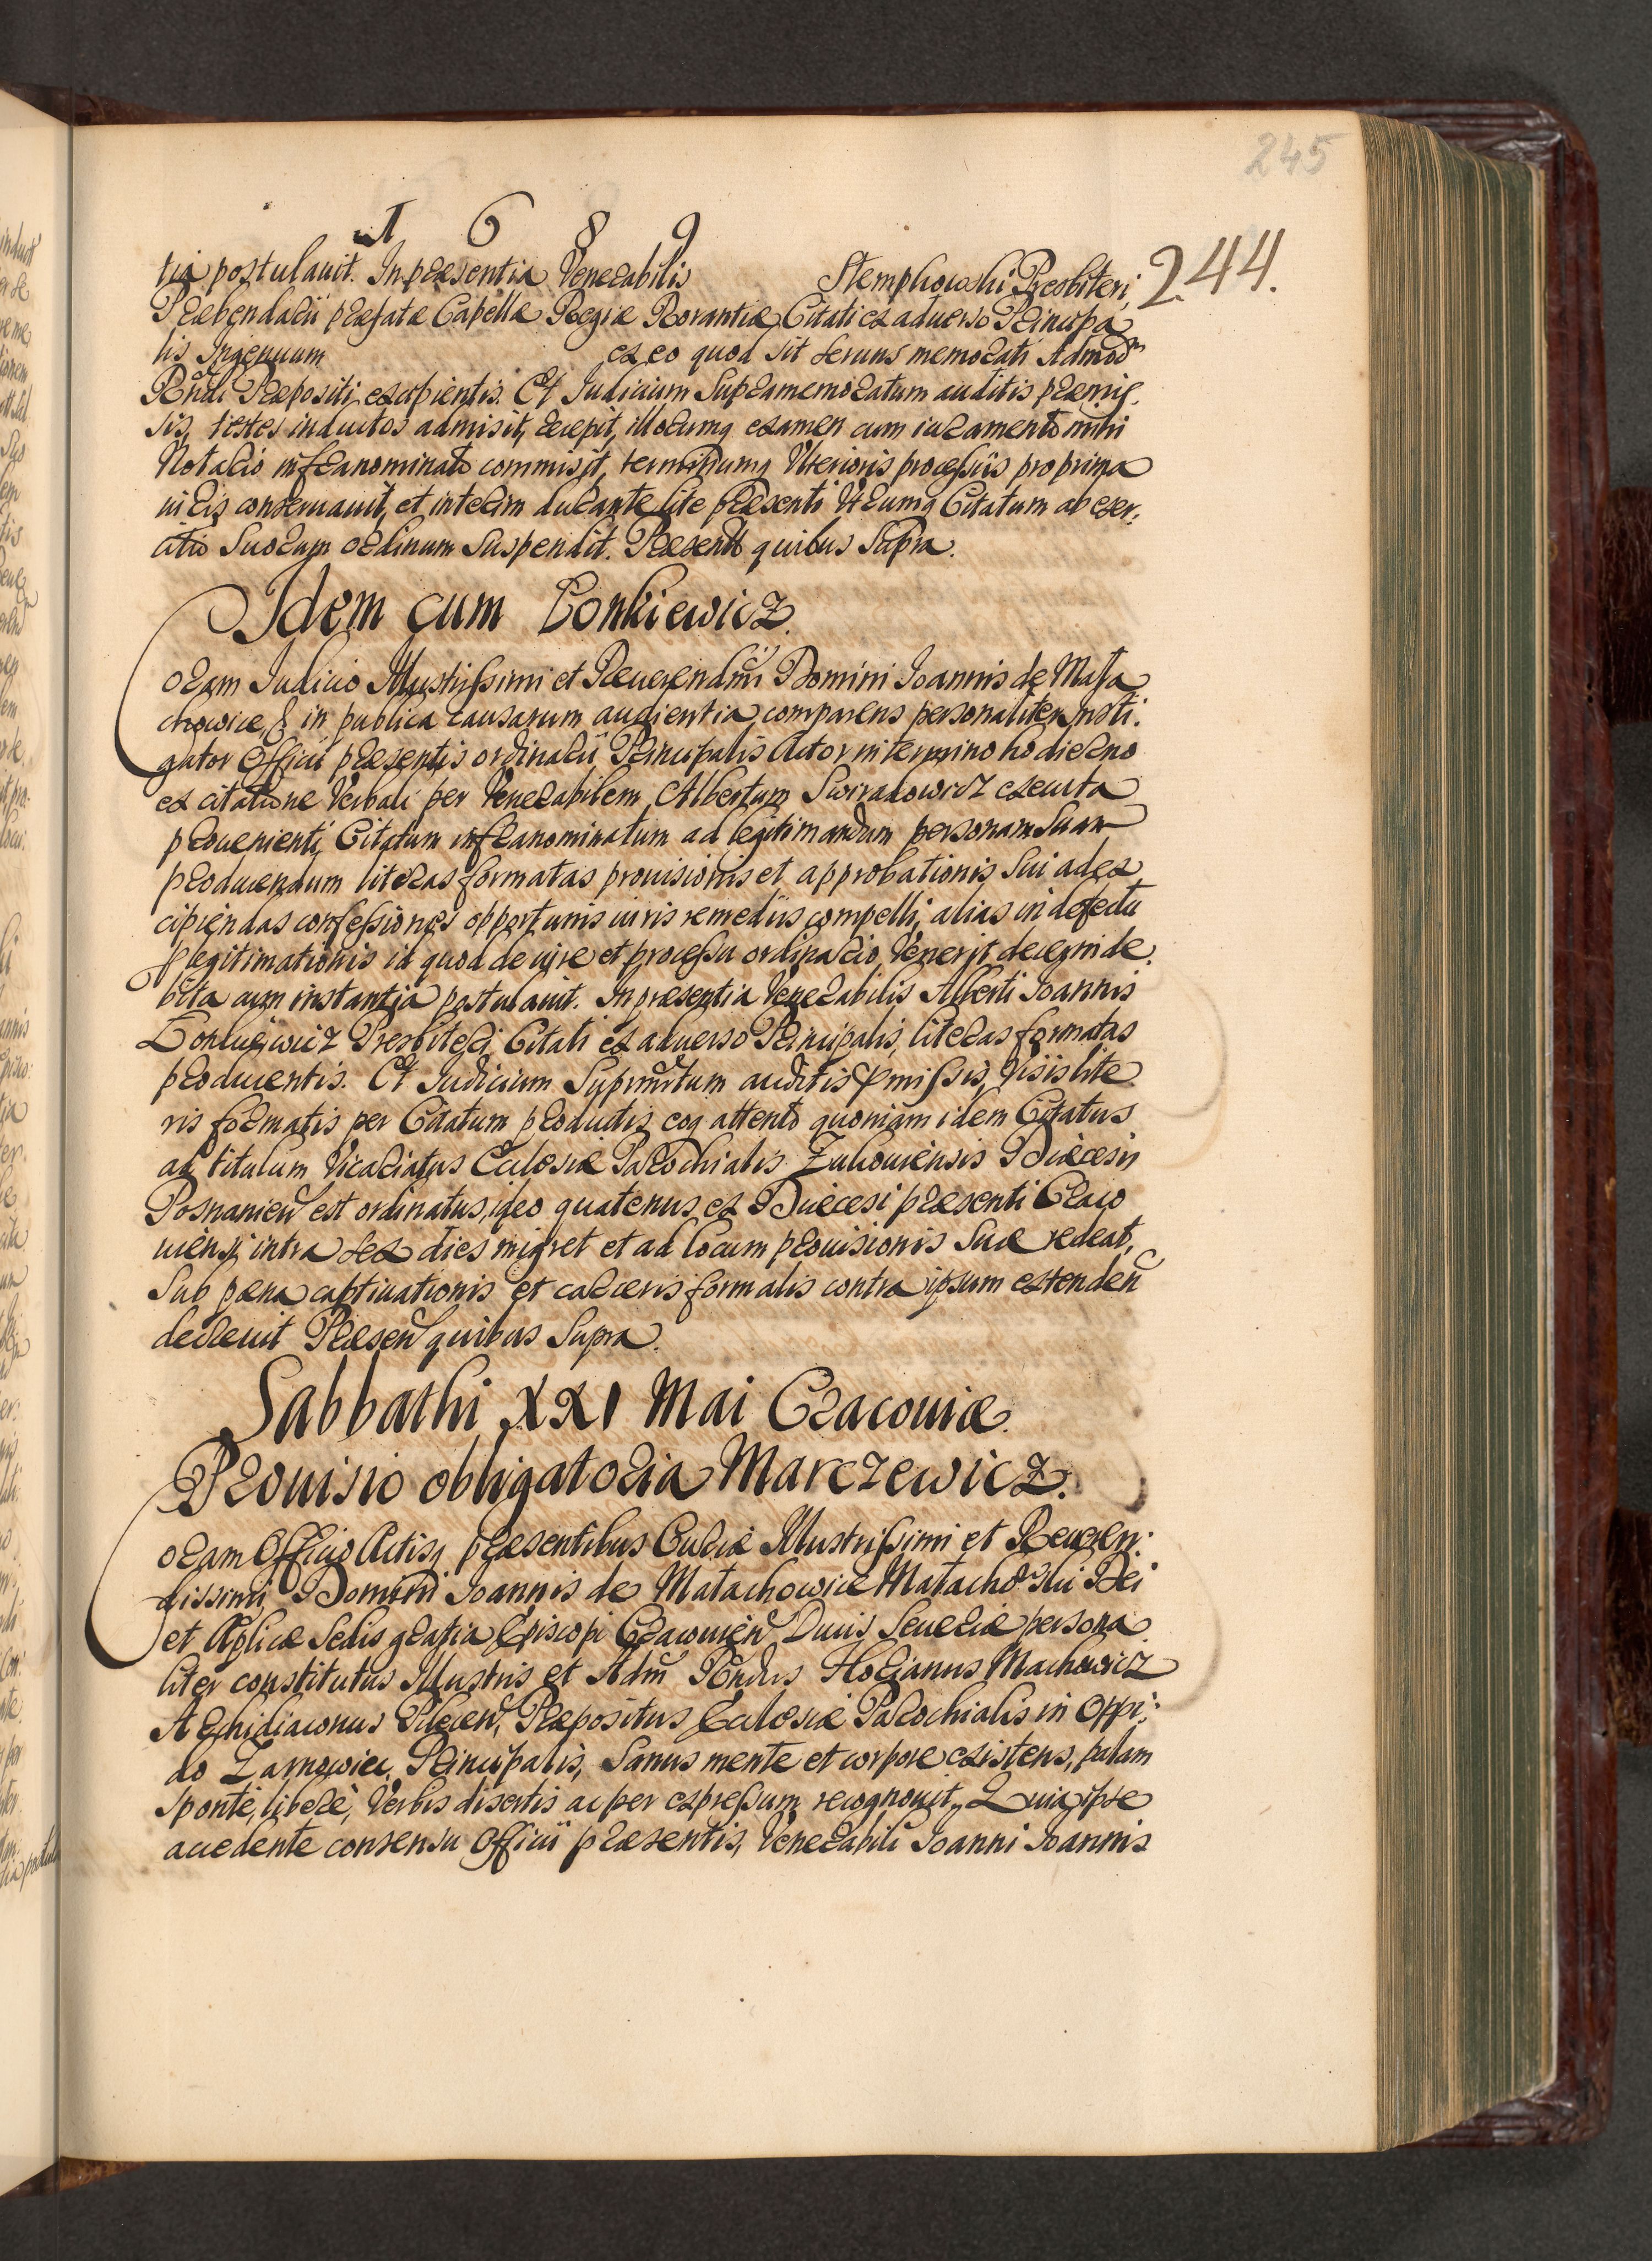 245
1 6 8 9
244.
tia postulauit. In præsentia Venerabilis Stemphowski Presbiteri,
Præbendarii præfatæ Capellæ Regiæ Rorantiæ Citati ex aduerso Principa
lis Ingenuum ex eo quod sit seruus memorati Admodm
Rñdi Præpositi excipientis. Et Iudicium Supramemoratum auditis præmis.
sis, testes inductos admisit, recepit, illorumq examen cum iuramento mihi
Notario infranominato commisit, terminumq Vlterioris processûs pro prima
iuris conseruauit, et interim durante lite præsenti Vtrumq Citatum ab exer:
citio Suorum ordinum Suspendit. Præsentt quibus Supra.
Idem cum Lonkiewicz.
oram Iudicio Illustrissimi et Reuerendmi Domini Ioannis de Mała
chowice, & in publica causarum audientia, comparens personaliter Insti:
gator Officii præsentis ordinarii Principalis Actor in termino hodierno
ex citatione Verbali per Venerabilem Albertum Swiradowicz executa
proueniente, Citatum infranominatum ad legitimandum personam Suam
producendum literas formatas prouisionis et approbationis Sui ad ex
cipiendas confessiones opportunis iuris remediis compelli, alias in defectu
legitimationis id quod de iure et processu ordinario Venerit decerni de
bita cum instantia postulauit. In præsentia Venerabilis Alberti Ioannis
Lonkiewicz Presbiteri Citati ex aduerso Principalis, literas formatas
producentis. Et Iudicium Suprmrtum auditis pmissis, Visis lite
ris formatis per Citatum productis, eoq attento quoniam idem Citatus
ad titulum Vicariatus Ecclesiæ Parochialis Zukouiensis Diæcesis
Posnanien est ordinatus, ideo quatenus ex Diæcesi præsenti Craco
uiensi intra sex dies migret et ad locum prouisionis Suæ redeat,
Sub pæna captiuationis et carceris formalis contra ipsum extenden
decreuit Præsen quibus Supra.
Sabbathi XXI Mai Cracouiæ.
Prouisio obligatoria Marczewicz.
oram Officio Actisq præsentibus Curiæ Illustrissimi et Reueren:
dissimi Domini Ioannis de Małachowice Małachowski Dei
et Aplicæ Sedis gratia Episcopi Cracouien Ducis Seueriæ persona
liter constitutus Illustris et Adm Rñdus Florianus Machowicz
Archidiaconus Pilecen, Præpositus Ecclesiæ Parochialis in Oppi:
do Zarnowiec, Principalis, Sanus mente et corpore existens, palam
sponte, liberè, Verbis disertis ac per expressum recognouit, Quia ipse
accedente consensu Officii præsentis, Venerabili Ioanni Ioannis